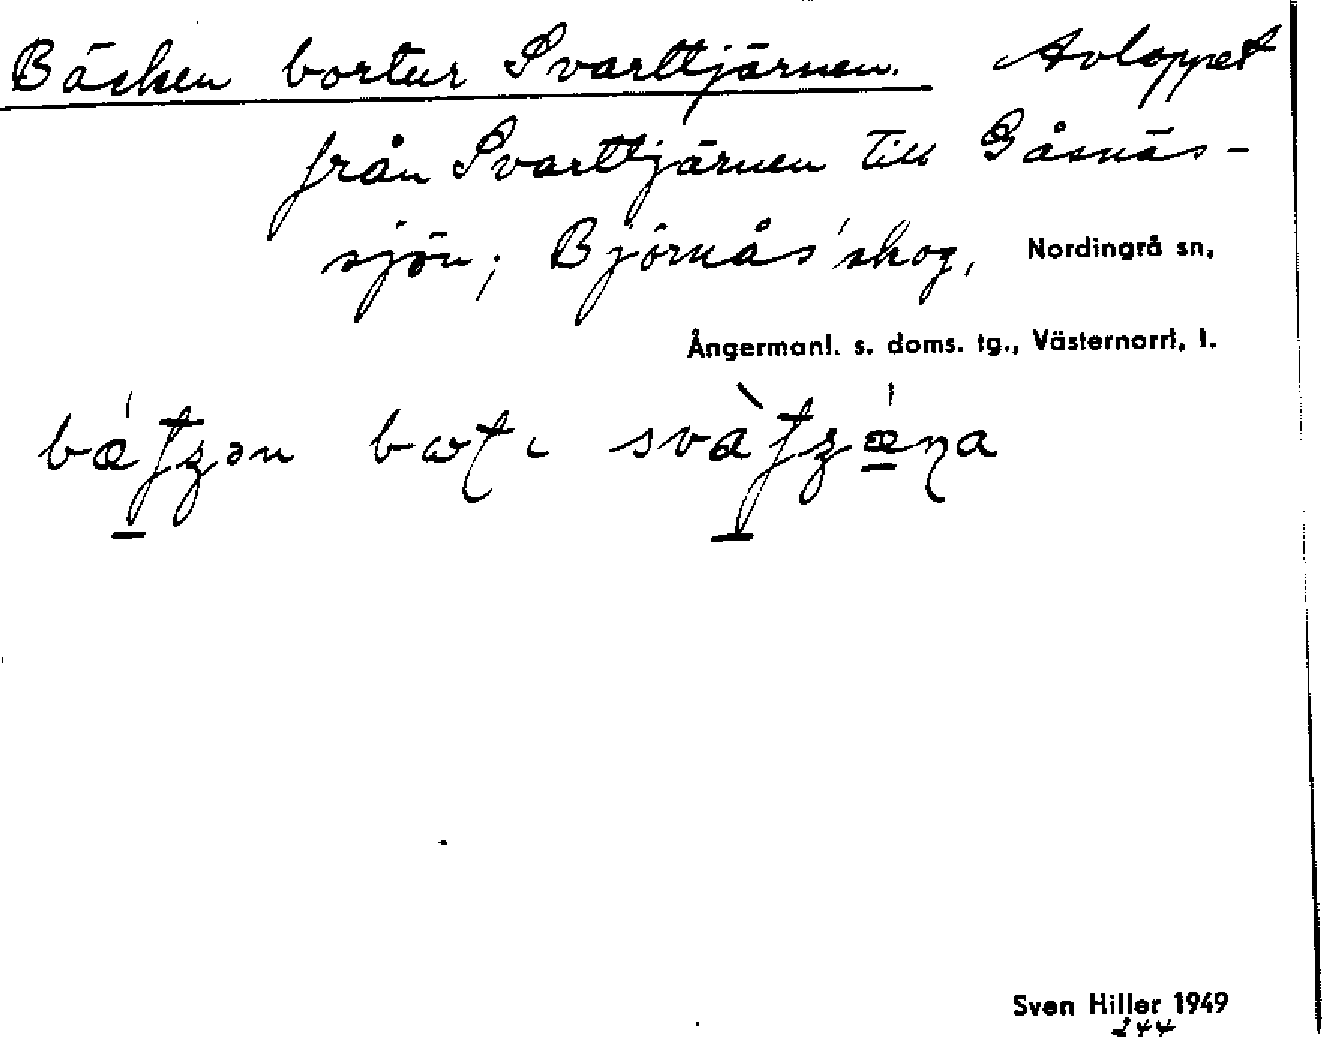 Bäcken bortur Svarttjärnen. Avloppet
från Svarttjärnen till Gåsnäs-
sjön; Björnås' skog, Nordingrå sn,
Ångermanl. s. doms. tg., Västernorrl. l.
Sven Hiller 1949
244